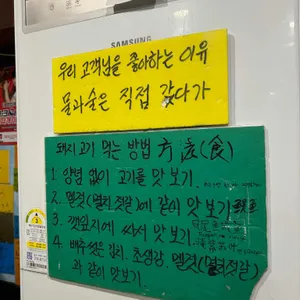 SAMSUNG
우리 고객님을 좋아하는 이유
물과술은 직접 갖다가
돼지고기 먹는 방법 方法(食)
1. 양념 없이 고기를 맛보기.
2. 멜젓(멸치젓갈)에 같이 맛보기
3. 깻잎지에 싸서 맛보기.
4. 배추씻은김치, 초생강, 멜젓(멸젓갈)
과 같이 맛보기.